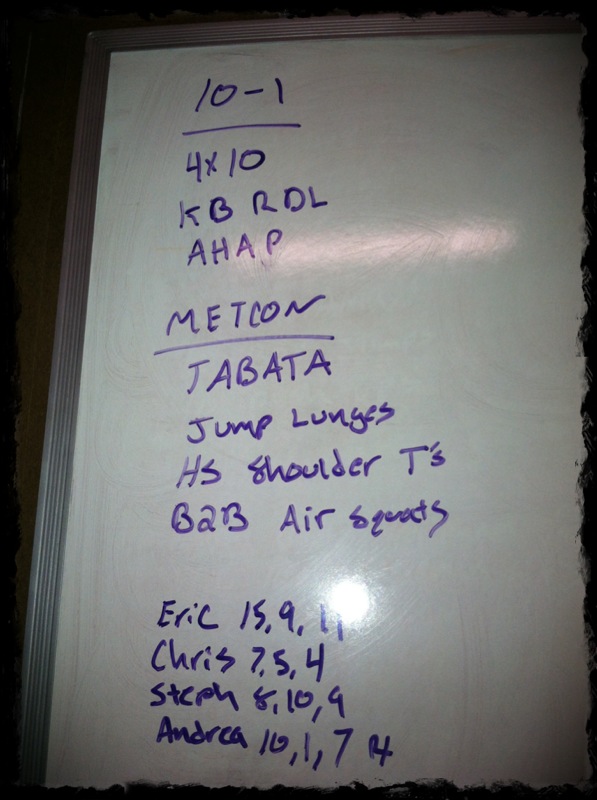 10-1
4x10
KB RDL
AHAP
METCON
TABATA
Jump Lunges
HS Shoulder T's
B2B Air Squats
Eric 15, 9,
Chris 7, 5, 4
Steph 8, 10, 9
Andrea 10, 1, 7